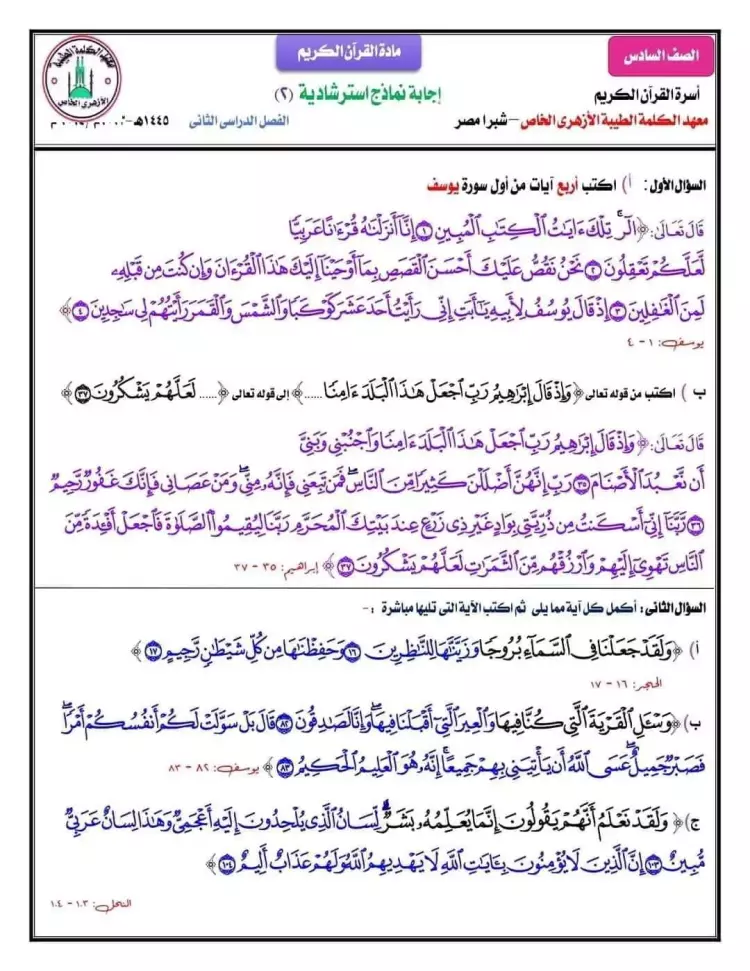 الصف السادس
مادة القرآن الكريم
أسرة القرآن الكريم
إجابة نماذج استرشادية (٢)
معهد الكلمة الطيبة الأزهرى الخاص – شبرا مصر
الفصل الدراسى الثانى
١٤٤٥هـ -
معهد الكلمة الطيبة
الأزهرى الخاص
السؤال الأول : أ) اكتب أربع آيات من أول سورة يوسف
قَالَ تَعَالَىٰ: ﴿الٓرۚ تِلۡكَ ءَايَٰتُ ٱلۡكِتَٰبِ ٱلۡمُبِينِ ١ إِنَّآ أَنزَلۡنَٰهُ قُرۡءَٰنًا عَرَبِيّٗا
لَّعَلَّكُمۡ تَعۡقِلُونَ ٢ نَحۡنُ نَقُصُّ عَلَيۡكَ أَحۡسَنَ ٱلۡقَصَصِ بِمَآ أَوۡحَيۡنَآ إِلَيۡكَ هَٰذَا ٱلۡقُرۡءَانَ وَإِن كُنتَ مِن قَبۡلِهِۦ
لَمِنَ ٱلۡغَٰفِلِينَ ٣ إِذۡ قَالَ يُوسُفُ لِأَبِيهِ يَٰٓأَبَتِ إِنِّي رَأَيۡتُ أَحَدَ عَشَرَ كَوۡكَبٗا وَٱلشَّمۡسَ وَٱلۡقَمَرَ رَأَيۡتُهُمۡ لِي سَٰجِدِينَ ٤﴾
يوسف: ١ - ٤
ب ) اكتب من قوله تعالى ﴿وَإِذۡ قَالَ إِبۡرَٰهِيمُ رَبِّ ٱجۡعَلۡ هَٰذَا ٱلۡبَلَدَ ءَامِنٗا ......﴾ إلى قوله تعالى ﴿...... لَعَلَّهُمۡ يَشۡكُرُونَ ٣٧﴾
قَالَ تَعَالَىٰ: ﴿وَإِذۡ قَالَ إِبۡرَٰهِيمُ رَبِّ ٱجۡعَلۡ هَٰذَا ٱلۡبَلَدَ ءَامِنٗا وَٱجۡنُبۡنِي وَبَنِيَّ
أَن نَّعۡبُدَ ٱلۡأَصۡنَامَ ٣٥ رَبِّ إِنَّهُنَّ أَضۡلَلۡنَ كَثِيرٗا مِّنَ ٱلنَّاسِۖ فَمَن تَبِعَنِي فَإِنَّهُۥ مِنِّيۖ وَمَنۡ عَصَانِي فَإِنَّكَ غَفُورٞ رَّحِيمٞ
٣٦ رَّبَّنَآ إِنِّيٓ أَسۡكَنتُ مِن ذُرِّيَّتِي بِوَادٍ غَيۡرِ ذِي زَرۡعٍ عِندَ بَيۡتِكَ ٱلۡمُحَرَّمِ رَبَّنَا لِيُقِيمُواْ ٱلصَّلَوٰةَ فَٱجۡعَلۡ أَفۡـِٔدَةٗ مِّنَ
ٱلنَّاسِ تَهۡوِيٓ إِلَيۡهِمۡ وَٱرۡزُقۡهُم مِّنَ ٱلثَّمَرَٰتِ لَعَلَّهُمۡ يَشۡكُرُونَ ٣٧﴾ إبراهيم: ٣٥ - ٣٧
السؤال الثانى : أكمل كل آية مما يلى ثم اكتب الآية التى تليها مباشرة : -
أ) ﴿وَلَقَدۡ جَعَلۡنَا فِي ٱلسَّمَآءِ بُرُوجٗا وَزَيَّنَّٰهَا لِلنَّٰظِرِينَ ١٦ وَحَفِظۡنَٰهَا مِن كُلِّ شَيۡطَٰنٖ رَّجِيمٍ ١٧﴾
الحجر: ١٦ - ١٧
ب) ﴿وَسۡـَٔلِ ٱلۡقَرۡيَةَ ٱلَّتِي كُنَّا فِيهَا وَٱلۡعِيرَ ٱلَّتِيٓ أَقۡبَلۡنَا فِيهَاۖ وَإِنَّا لَصَٰدِقُونَ ٨٢ قَالَ بَلۡ سَوَّلَتۡ لَكُمۡ أَنفُسُكُمۡ أَمۡرٗاۖ
فَصَبۡرٞ جَمِيلٌۖ عَسَى ٱللَّهُ أَن يَأۡتِيَنِي بِهِمۡ جَمِيعًاۚ إِنَّهُۥ هُوَ ٱلۡعَلِيمُ ٱلۡحَكِيمُ ٨٣﴾ يوسف: ٨٢ - ٨٣
ج) ﴿وَلَقَدۡ نَعۡلَمُ أَنَّهُمۡ يَقُولُونَ إِنَّمَا يُعَلِّمُهُۥ بَشَرٞۗ لِّسَانُ ٱلَّذِي يُلۡحِدُونَ إِلَيۡهِ أَعۡجَمِيّٞ وَهَٰذَا لِسَانٌ عَرَبِيّٞ
مُّبِينٌ ١٠٣ إِنَّ ٱلَّذِينَ لَا يُؤۡمِنُونَ بِـَٔايَٰتِ ٱللَّهِ لَا يَهۡدِيهِمُ ٱللَّهُ وَلَهُمۡ عَذَابٌ أَلِيمٌ ١٠٤﴾
النحل: ١٠٣ - ١٠٤